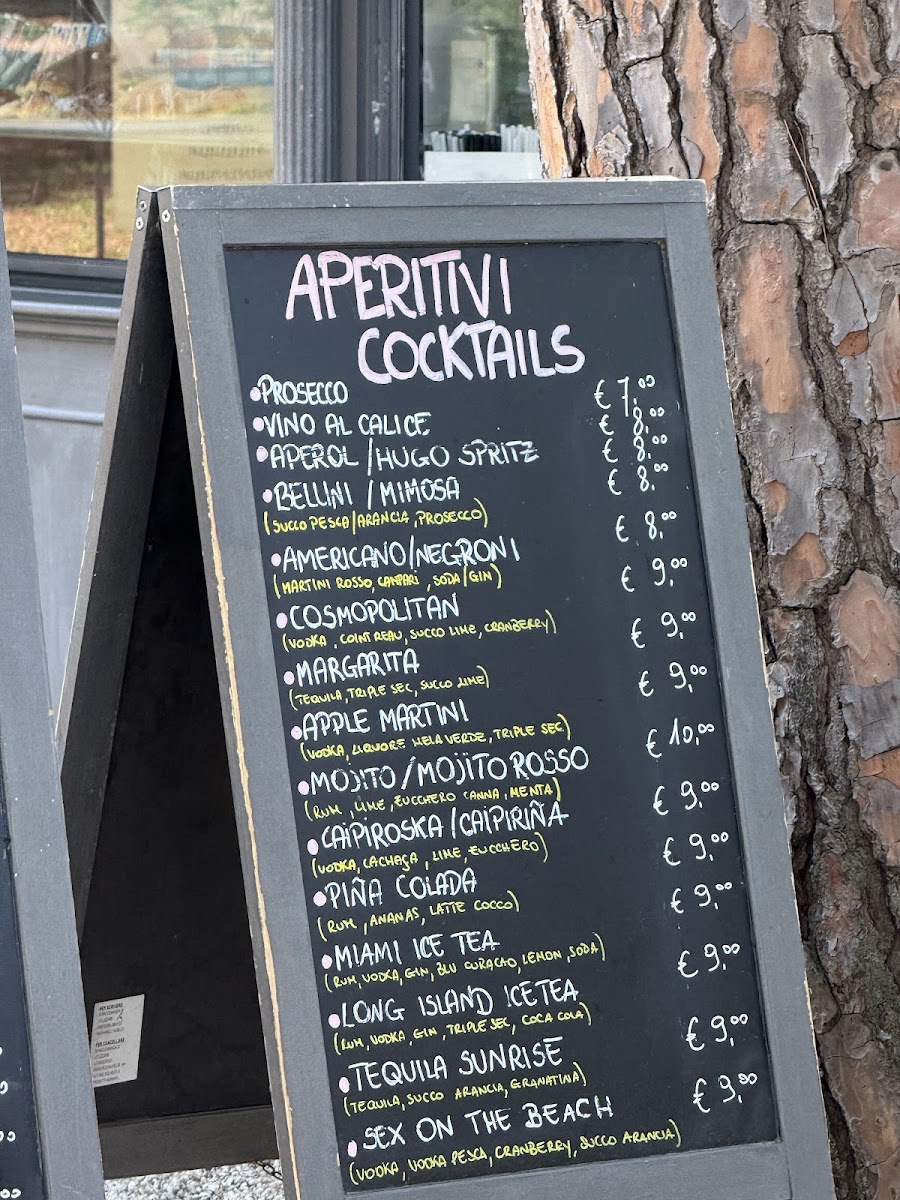 APERITIVI
COCKTAILS
PROSECCO € 7,00
VINO AL CALICE € 8,00
APEROL / HUGO SPRITZ € 8,00
BELLINI / MIMOSA € 8,00
(SUCCO PESCA/ARANCIA, PROSECCO)
AMERICANO/NEGRONI € 8,00
(MARTINI ROSSO, CAMPARI, SODA/GIN)
COSMOPOLITAN € 9,00
(VODKA, COINTREAU, SUCCO LIME, CRANBERRY)
MARGARITA € 9,00
(TEQUILA, TRIPLE SEC, SUCCO LIME)
APPLE MARTINI € 9,00
(VODKA, LIQUORE MELA VERDE, TRIPLE SEC)
MOJITO / MOJITO ROSSO € 10,00
(RUM, LIME, ZUCCHERO CANNA, MENTA)
CAIPIROSKA / CAIPIRIÑA € 9,00
(VODKA, CACHAÇA, LIME, ZUCCHERO)
PIÑA COLADA € 9,00
(RUM, ANANAS, LATTE COCCO)
MIAMI ICE TEA € 9,00
(RUM, VODKA, GIN, BLU CURACAO, LEMON SODA)
LONG ISLAND ICE TEA € 9,00
(RUM, VODKA, GIN, TRIPLE SEC, COCA COLA)
TEQUILA SUNRISE € 9,00
(TEQUILA, SUCCO ARANCIA, GRANATINA)
SEX ON THE BEACH € 9,00
(VODKA, VODKA PESCA, CRANBERRY, SUCCO ARANCIA)
PER CANCELLARE